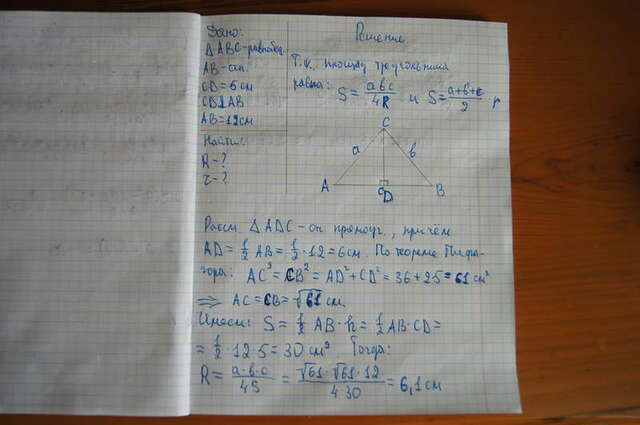 Дано:
Δ ABC-равнобед.
AB-осн.
CD=5см
CD⊥AB
AB=12см
Найти:
R-?
r-?
Решение.
Т.к. площадь треугольника
равна: S= abc/4R и S= a+b+c/2 r
C
a b
A D B
Рассм. Δ ADC - он прямоуг., причём
AD= 1/2 AB = 1/2·12=6см. По теореме Пифа-
гора: AC²=CB²=AD²+CD²=36+25=61 см²
⇒ AC=CB=√61 см.
Имеем: S= 1/2 AB·h= 1/2 AB·CD=
= 1/2·12·5=30 см². Тогда:
R= a·b·c/4S = √61·√61·12/4·30 =6,1 см